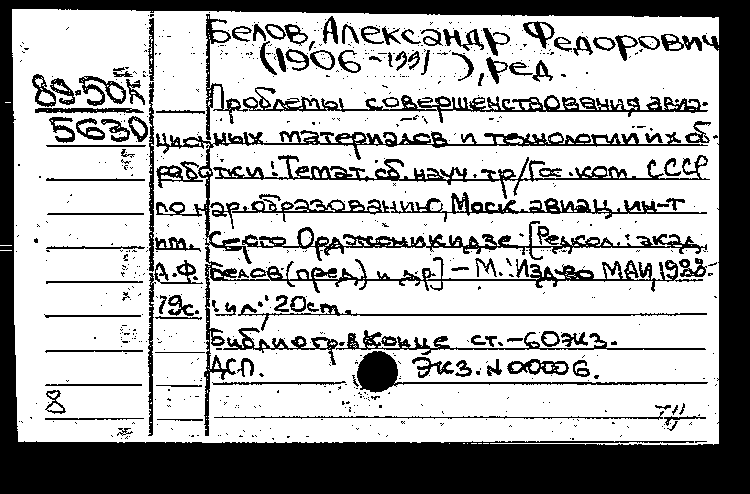 Белов, Александр Федорович
(1906-1991), ред.
89-50к
5630
Проблемы совершенствования авиа-
ционных материалов и технологии их об-
работки: Темат. сб. науч. тр/Гос. ком. СССР
по нар. образованию, Моск. авиац. ин-т
им. Серго Орджоникидзе; [Редкол.: акад.
А.Ф. Белов (пред.) и др.] - М.: Изд-во МАИ, 1988.-
79с. : ил.; 20см.
Библиогр. в конце ст. - 60экз.
ДСП. Экз. N 00006.
8